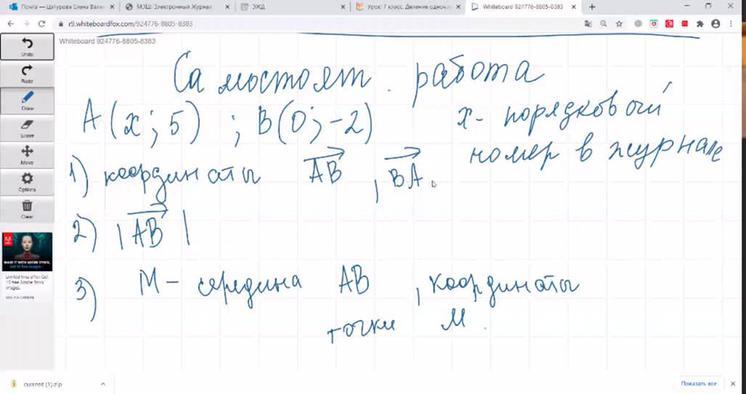 Почта — Шатурова Елена Вален
МЭШ. Электронный Журнал
ЭЖД
Урок: 7 класс. Деление одночл
Whiteboard 924776-8805-8383
r9.whiteboardfox.com/924776-8805-8383
Whiteboard 924776-8805-8383
Undo
Redo
Draw
Eraser
Move
Options
Clear
Самостоят. работа
A(x; 5) ; B(0; -2) x - порядковый
номер в журнале
1) координаты AB , BA
2) |AB|
3) M - середина AB , координаты
точки M.
current (1).zip
Показать все